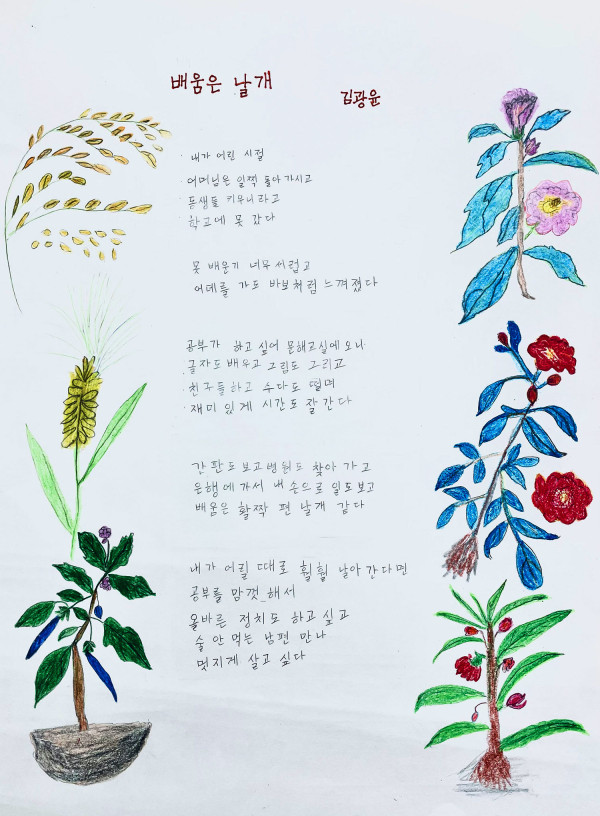 배움은 날개
김광윤
내가 어린 시절
어머님은 일찍 돌아가시고
동생들 키우니라고
학교에 못 갔다
못 배운기 너무 서럽고
어데를 가도 바보처럼 느껴졌다
공부가 하고 싶어 문해교실에 오니
글자도 배우고 그림도 그리고
친구들하고 수다도 떨며
재미 있게 시간도 잘 간다
간판도 보고 병원도 찾아 가고
은행에 가서 내 손으로 일도 보고
배움은 활짝 편 날개 같다
내가 어릴 때로 훨훨 날아간다면
공부를 맘껏 해서
올바른 정치도 하고 싶고
술 안 먹는 남편 만나
멋지게 살고 싶다